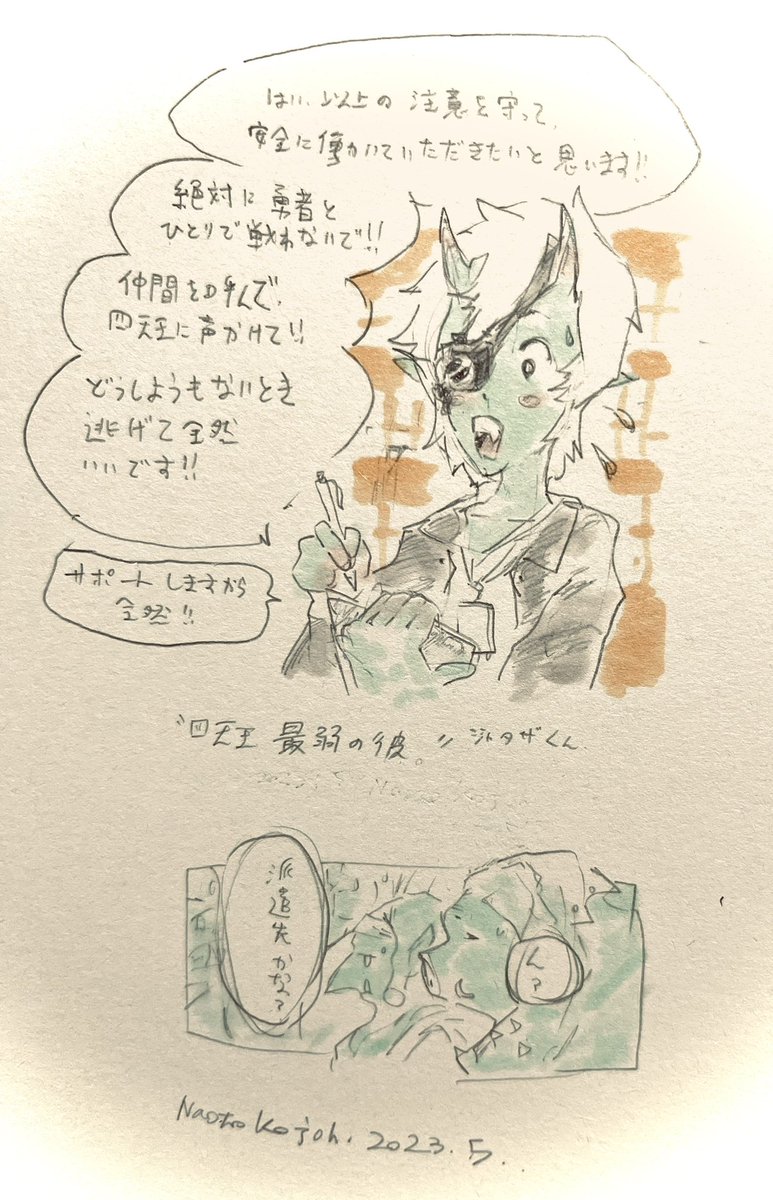 はい、以上の注意を守って、
安全に働いていただきたいと思います!!
絶対に勇者と
ひとりで戦わないで!!
仲間を呼んで、
四天王に声かけて!!
どうしようもないとき
逃げて全然
いいです!!
サポートしますから
全然!!
"四天王 最弱の彼。"
くん
派遣先かな?
ん?
Kojoh. 2023.5.